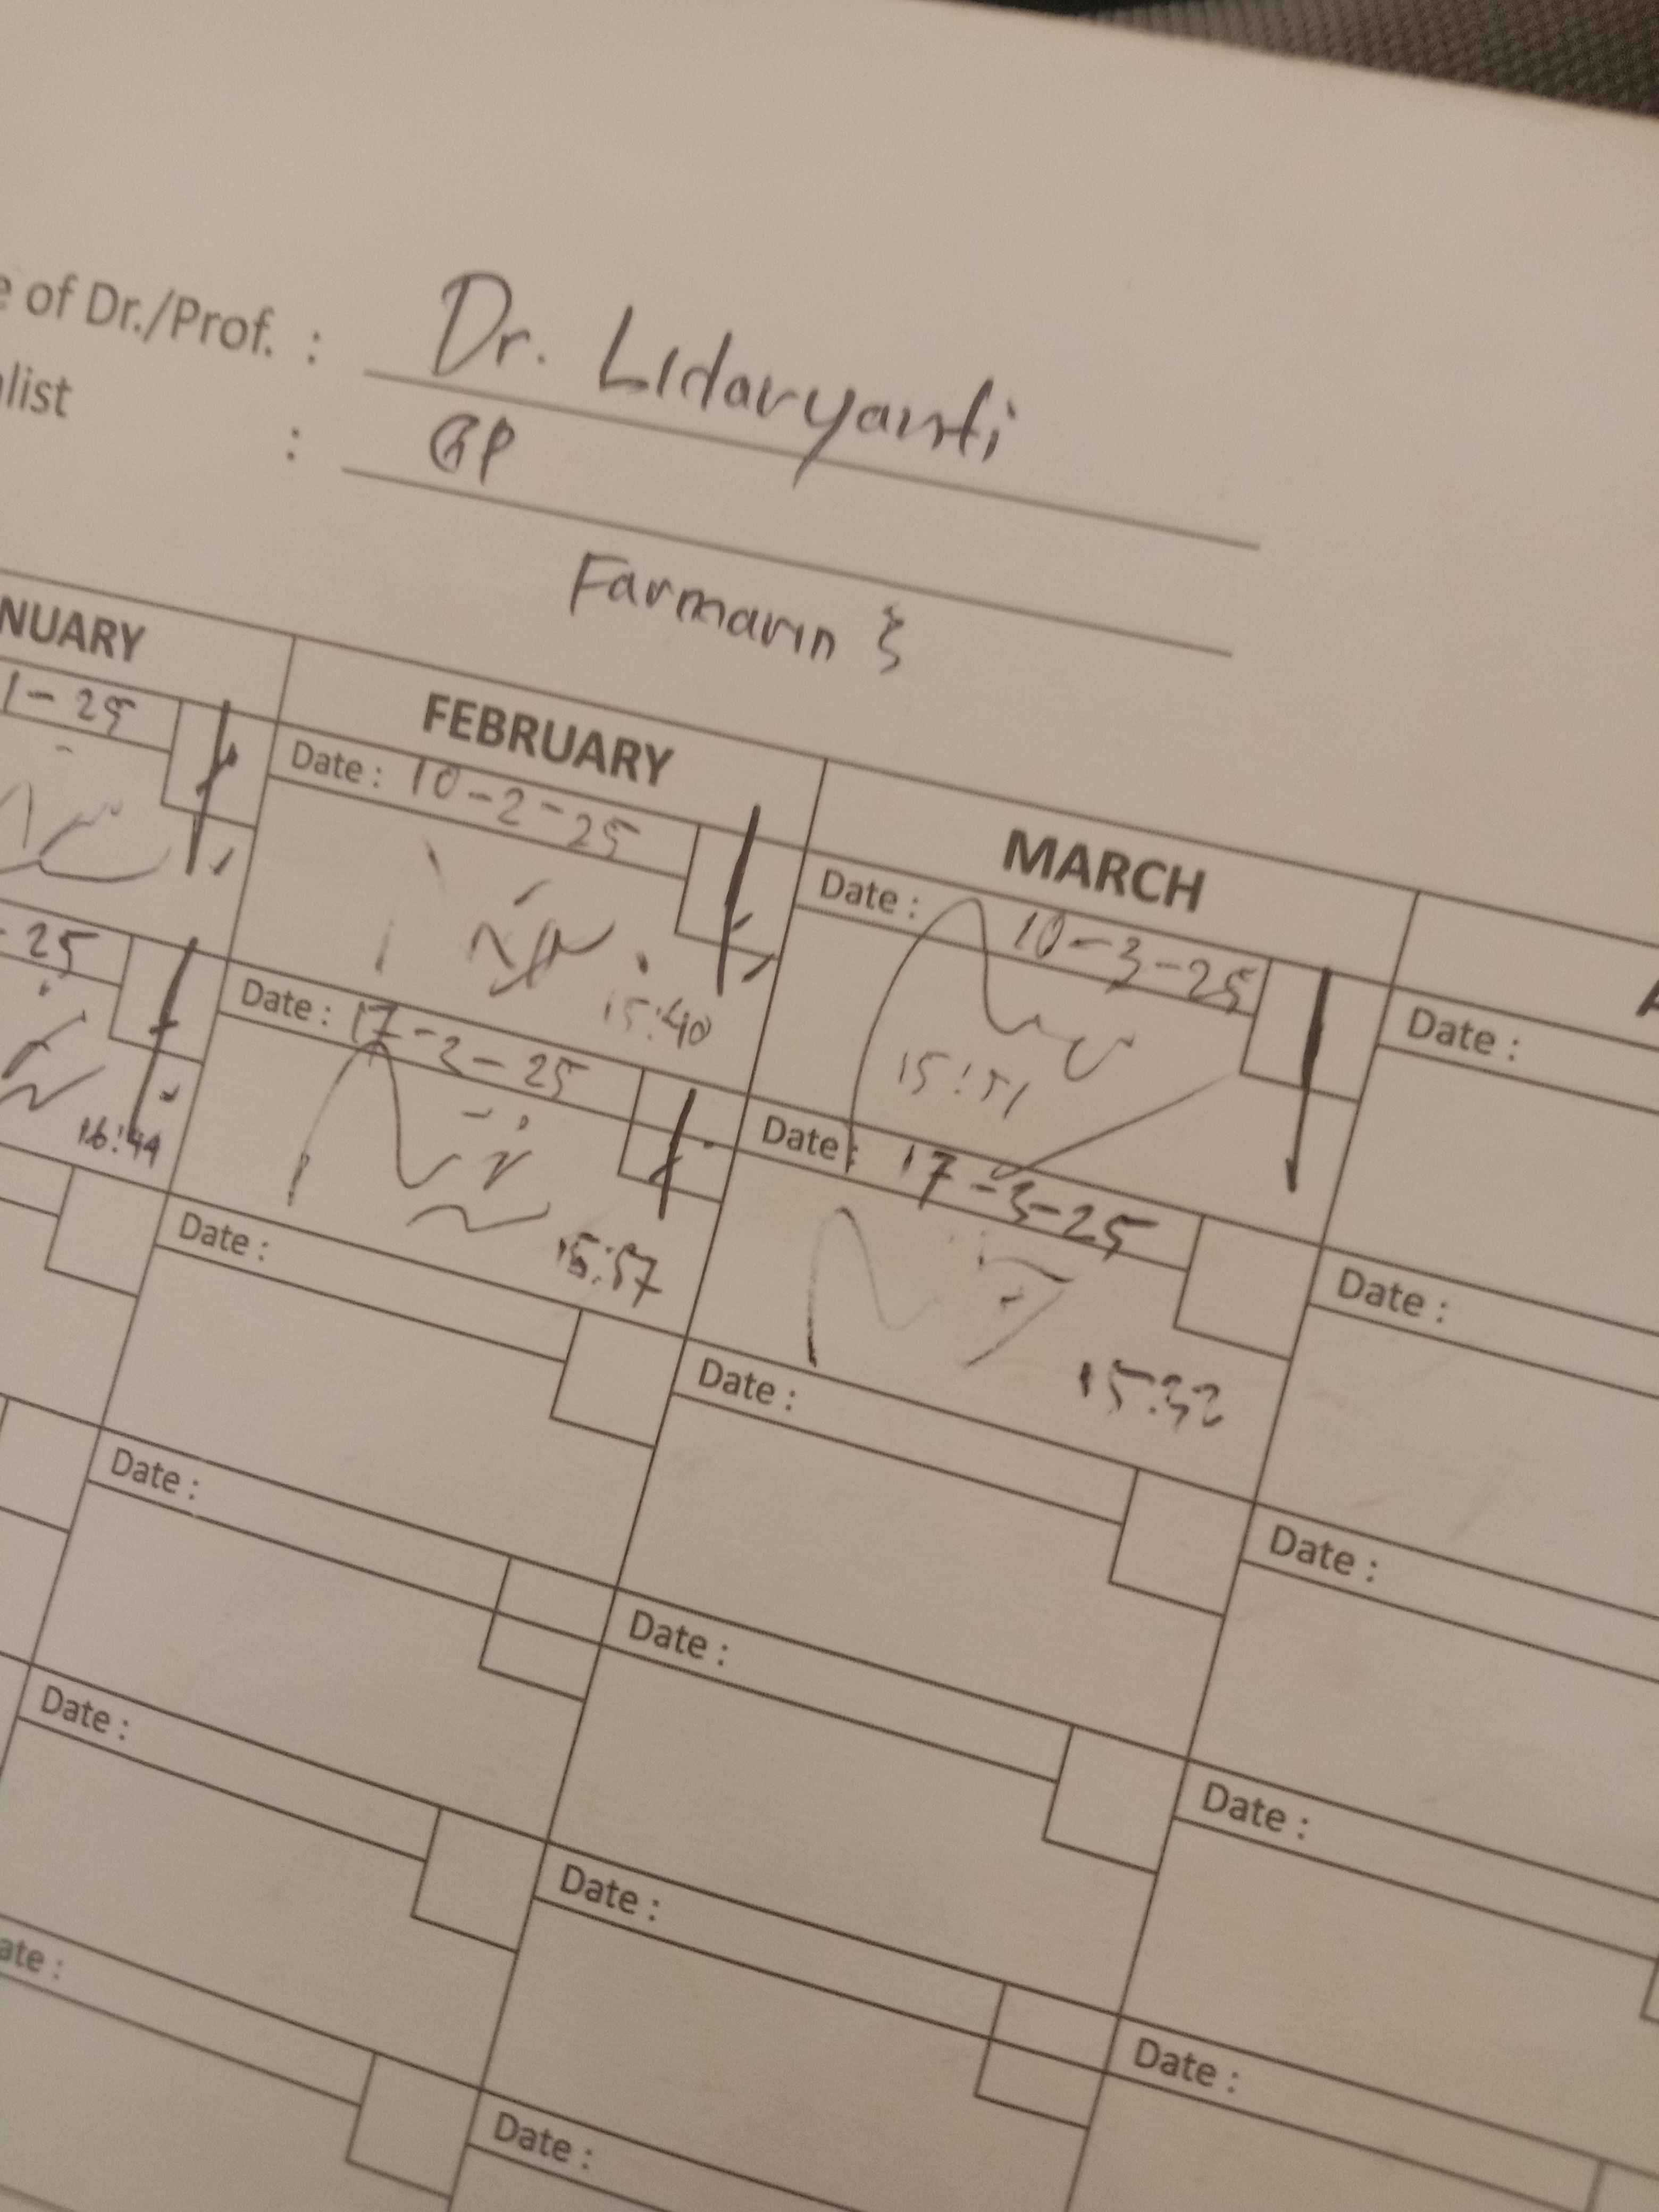 e of Dr./Prof. : Dr. Lidaryanti
alist : GP
Farmarin
NUARY
FEBRUARY
MARCH
1-25
Date : 10-2-25
15:40
Date : 10-3-25
15:51
Date :
25
16:44
Date : 17-2-25
15:57
Date : 17-3-25
15:32
Date :
Date :
Date :
Date :
Date :
Date :
Date :
Date :
Date :
ate :
Date :
Date :